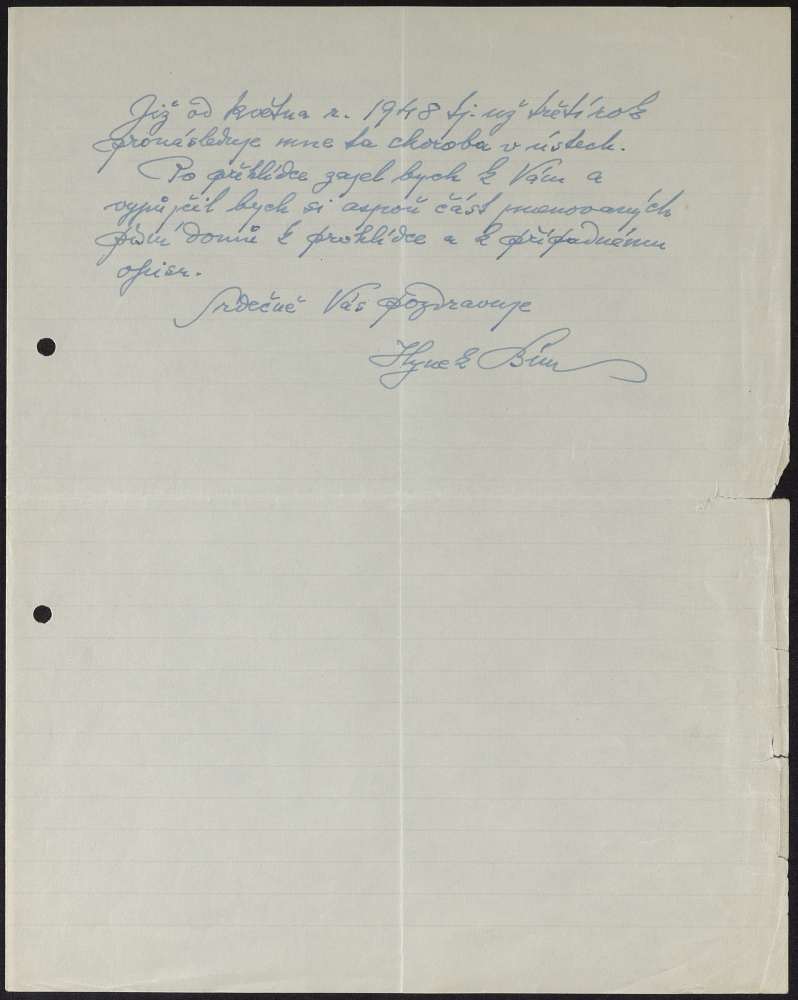 Již od května r. 1948 tj. už třetí rok
pronásleduje mne ta choroba v ústech.
Po přehlídce zajel bych k Vám a
vypůjčil bych si aspoň část jmenovaných
písní domů k prohlídce a k případnému
opisu.
Srdečně Vás pozdravuje
Hynek Bím